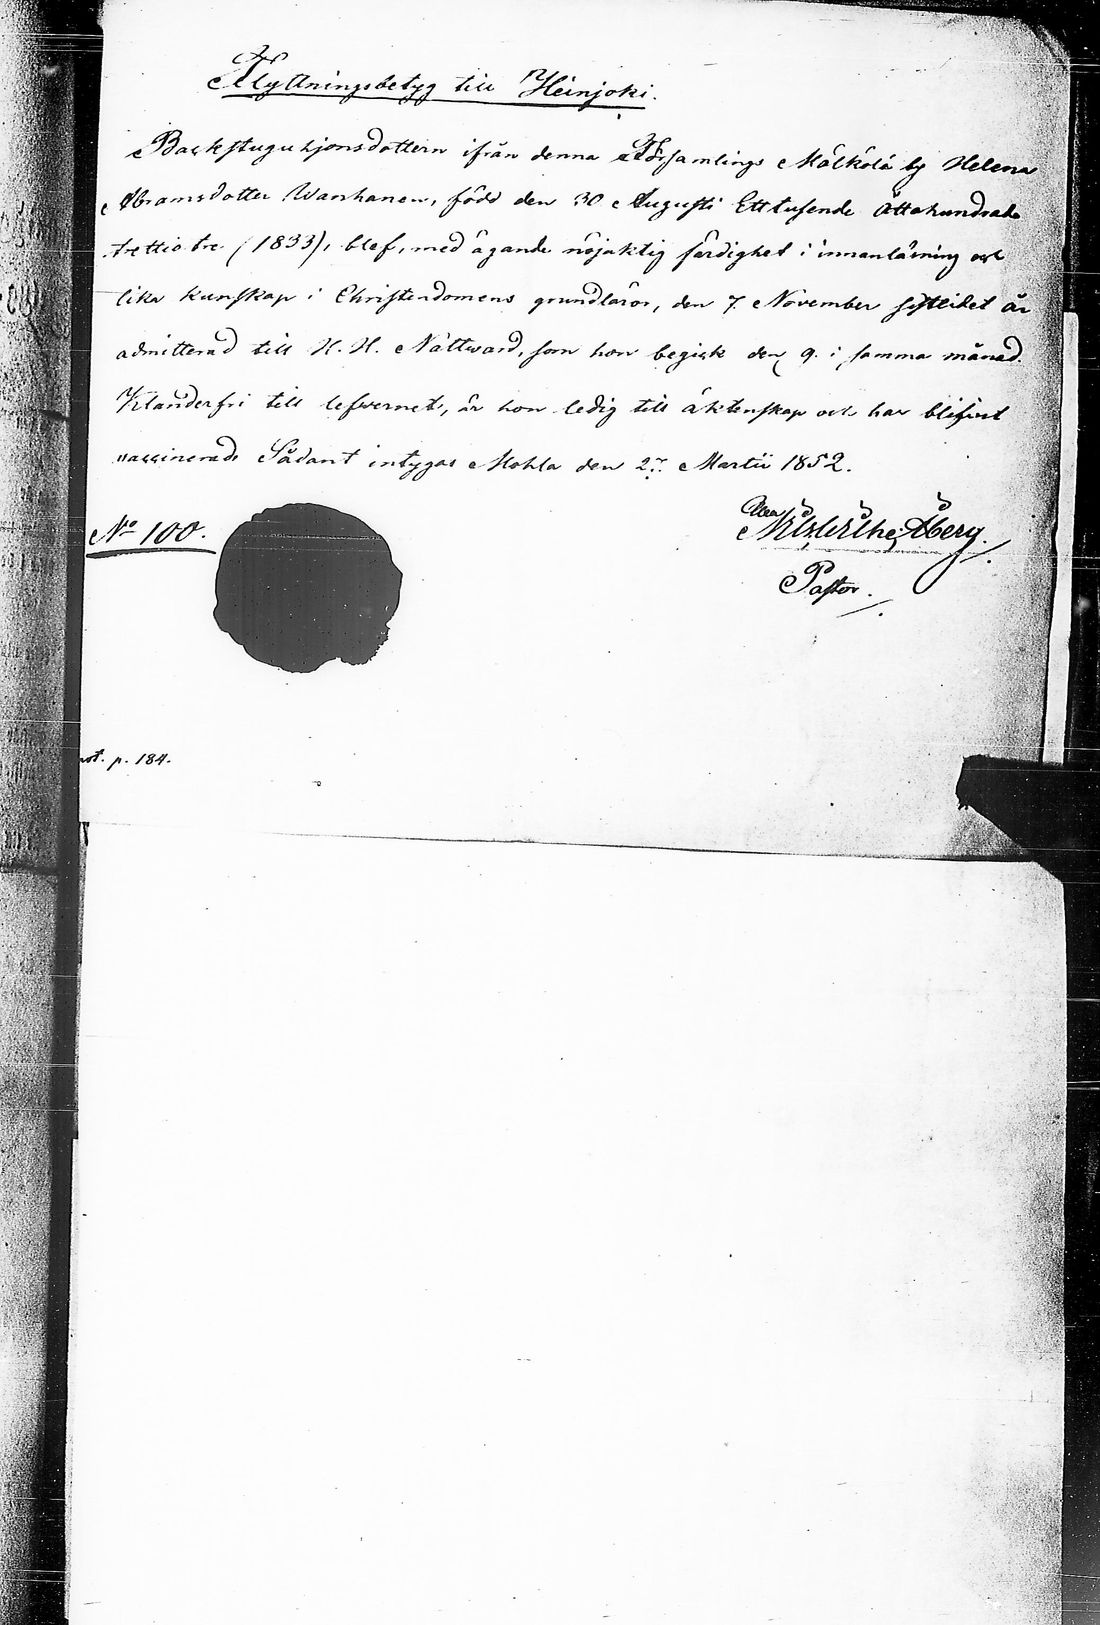 Flyttningsbetyg till Heinjoki.
Backstuguhjonsdottern ifrån denna Församlings Mälkölä by Helena
Abramsdotter Wanhanen, född den 30 Augusti Ett tusende Åttahundrade
trettio tre (1833), blef, med ägande nöjaktig färdighet i innanläsning och
lika kunskap i Christendomens grundläror, den 7 November sistlidet år
admitterad till H. H. Nattward, som hon begick den 9. i samma månad.
Klanderfri till lefvernet, är hon ledig till äktenskap och har blifvit
vaccinerad. Sådant intygas Mohla den 27. Martii 1852.
No 100.
Åberg.
Pastor.
not. p. 184.